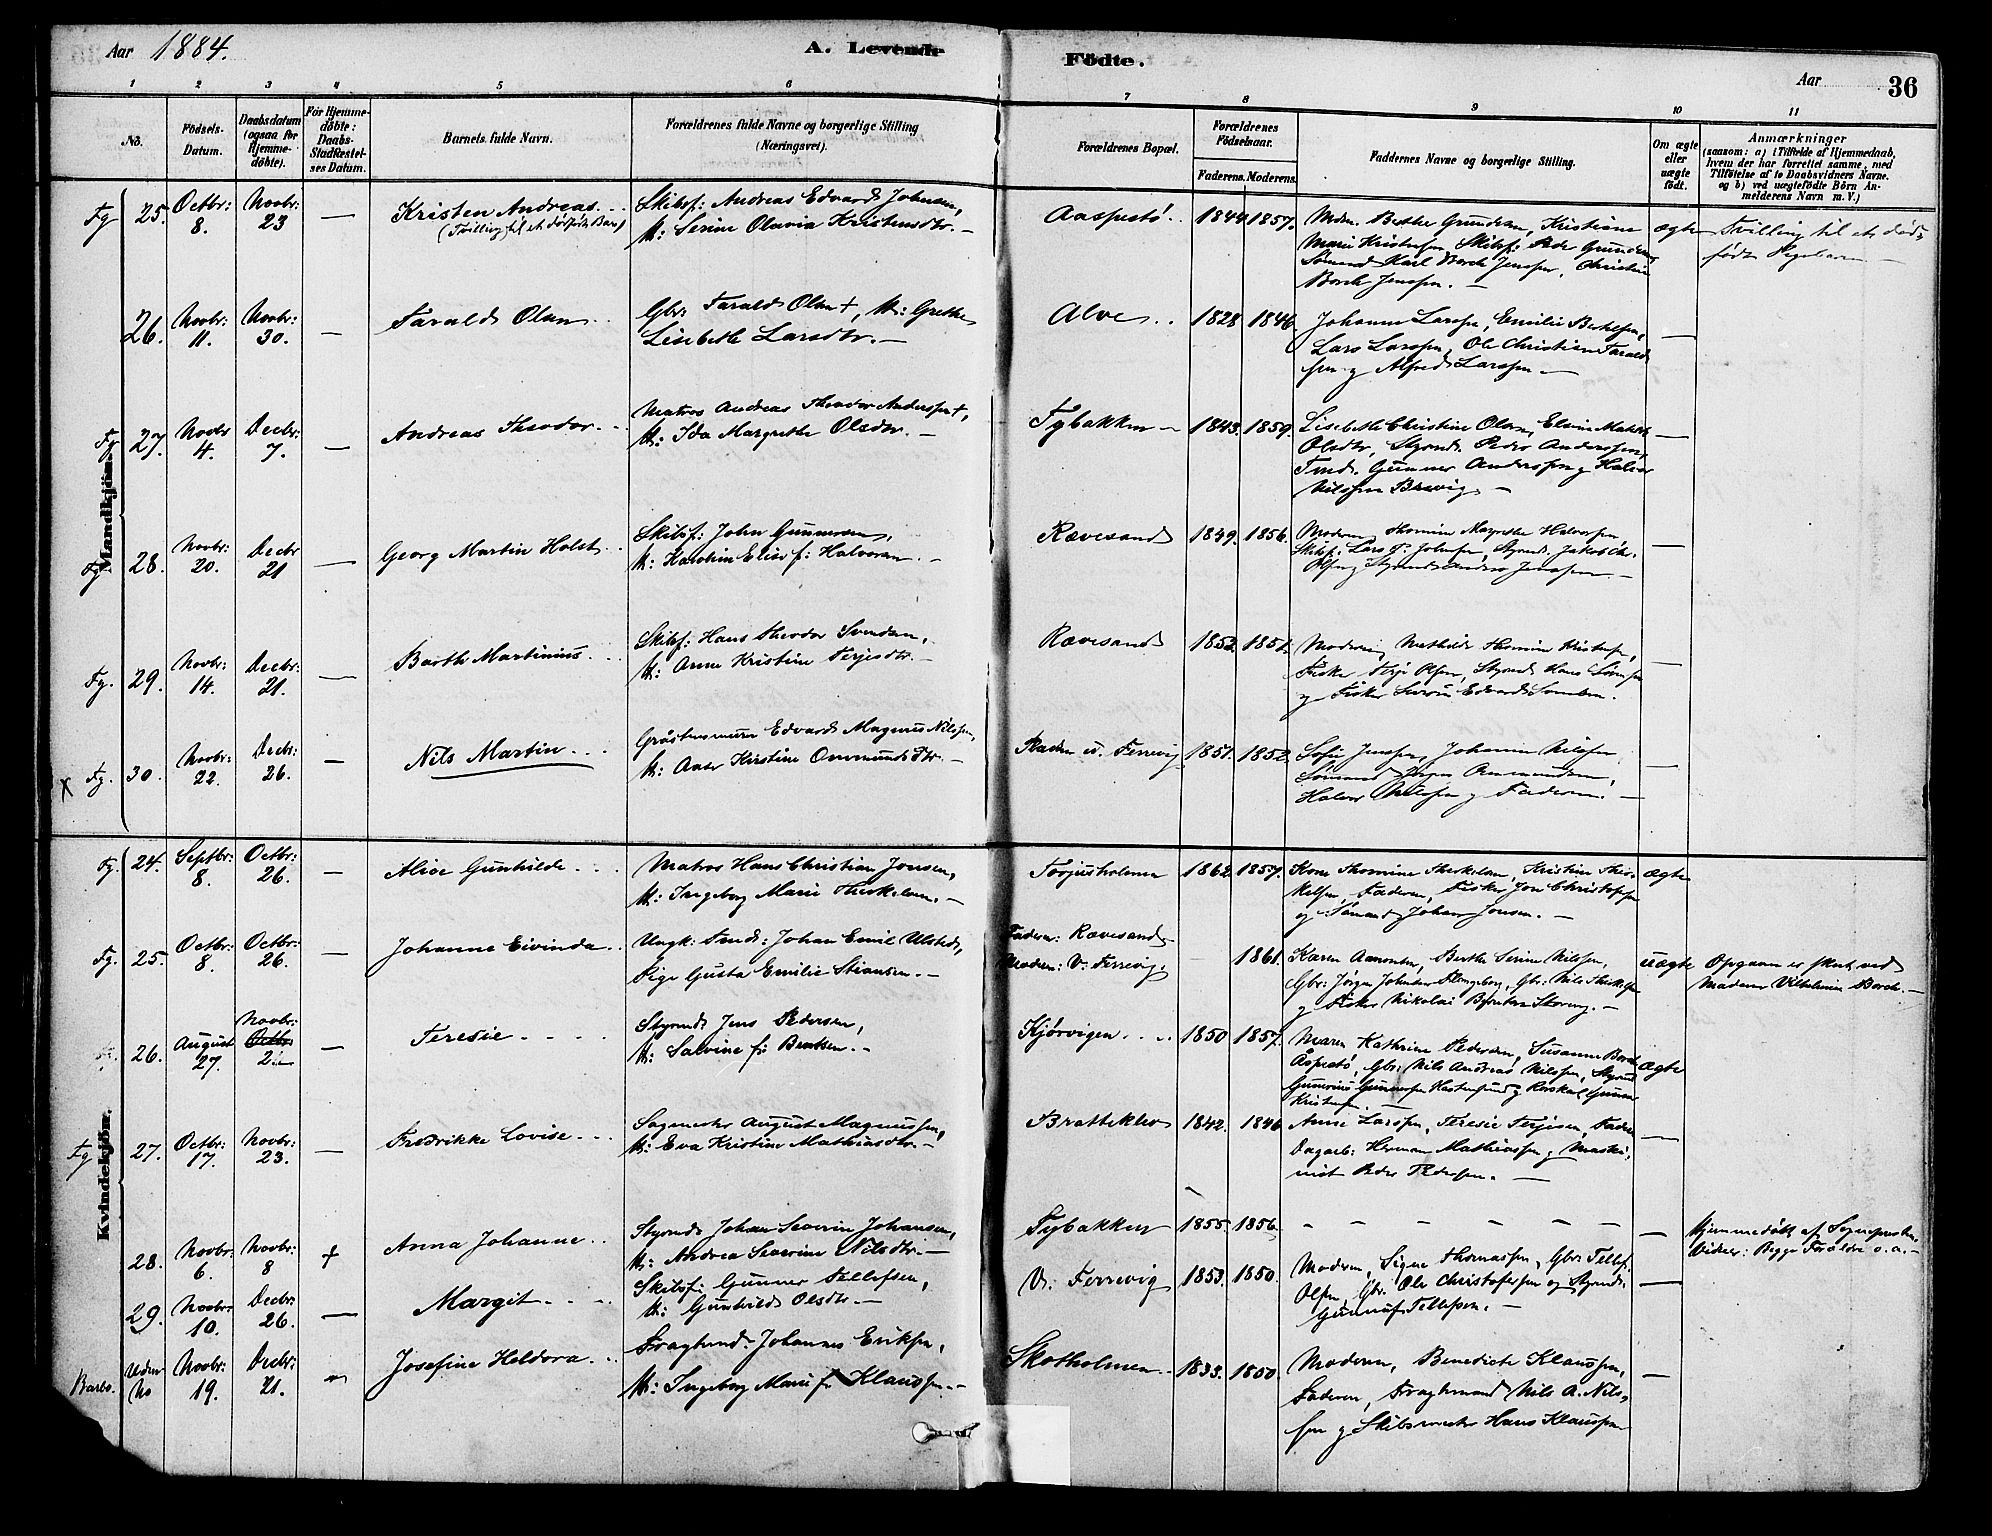 Aar 1884.
A. Levende Födte.
Aar
36
1 2 3 4 5 6 7 8 9 10 11
No.
Födsels-Datum.
Daabsdatum (ogsaa for Hjemme-döbte).
For Hjemme-döbte: Daabs-Stadfæstel-ses Datum.
Barnets fulde Navn.
Forældrenes fulde Navne og borgerlige Stilling (Næringsvei).
Forældrenes Bopæl.
Forældrenes Födselsaar.
Faderens. Moderens.
Faddernes Navne og borgerlige Stilling.
Om ægte eller uægte födt.
Anmærkninger
(saasom: a) i Tilfælde af Hjemmedaab,
hvem der har forrettet samme, med
Tilføielse af to Daabsvidners Navne.
og b) ved uægtefödte Börn An-
melderens Navn m. V.)
Mandkjön.
Fg 25. Octbr: 8. Novbr: 23 — Kristen Andreas
(Tvilling til et dødfødt Barn)
Skibsf: Andreas Edvard Johnsen,
H: Serine Olavia Kristensdtr. —
Aaspestø 1844 1857. Modn. Berthe Gundersen, Kristiane
Marie Kristensen Skibsf: Peder Gundersen,
Sømand Karl Borch Jenssen, Christine
Borch Jenssen. —
ægte Tvilling til et død-
født Pigebarn —
26. Novbr: 11. Novbr: 30. — Tarald Olsen
Gbr: Tarald Olsen +, H: Grethe
Lisebeth Larsdtr. —
Alve 1828 1846. Johanne Larssen, Emilie Bertelsen,
Lars Larssen, Ole Christian Tarald-
sen og Alfred Larssen —
Fg 27. Novbr 4. Decbr: 7. — Andreas Theodor
Matros Andreas Theodor Anderssen +,
H: Ida Margrethe Olsdtr. —
Tybakken — 1843. 1859. Lisebeth Christine Olsen, Elvine Mathilde
Olsdtr, Styrmd. Peder Anderssen,
Tmd. Gunner Anderssen og Halvor
Nilssen Brevig —
Fg 28. Novbr: 20. Decbr 21 — Georg Martin Holst
Skibsf: John Gunnersen,
H: Karoline Elise f: Halvorsen. —
Rævesand 1849. 1856. Moderen, Thomine Margrethe Halvorsen,
Skibsf: Lars P. Johnsen, Styrmd. Jakob Chr.
Olsen og Styrmd Anders Jenssen. —
Fg. 29. Novbr: 14. Decbr: 21. — Barth Martinius
Skibsf: Hans Theodor Svendsen,
H: Anne Kristine Terjesdtr. —
Rævesand 1853. 1851. Moderen, Mathilde Thomine Kristensen,
Fisker Terje Olsen, Styrmd Hans Sørensen
og Fisker Severin Edvard Svendsen.
X Fg. 30. Novbr: 22. Decbr: 26. — Nils Martin
Gråstensmurer Edvard Magnus Nilssen,
H: Aase Kirstine Ommundsdtr. —
Færrevig 1851. 1852. Sofie Jenssen, Johanne Nilssen,
Sømand Jørgen Ommundsen,
Halvor Nilssen og Faderen. —
Kvindekjön.
Fg. 24. Septbr: 8. Octbr: 26. — Alice Gunhilde
Matros Hans Christian Jonsen,
H: Ingeborg Marie Therkelsen. —
Torjusholmen 1862. 1857. Kone Thomine Therkelsen, Kristine Ther-
kelsen, Faderen, Fisker Jon Christophersen
og Sømand Johan Jonsen. —
ægte
Fg. 25. Octbr: 8. Octbr: 26. — Johanne Eivinda
Ungk: Tmd: Johan Emil Ulsted,
Pige Gusta Emilie Stiansen. —
Faderen: Rævesand —
Moderen: V: Ferrevig.
1861. Karen Aamonsen, Berthe Serine Nilsen,
Gbr: Jørgen Johnsen Flangeborg, Gbr: Nils Therkelsen
og Fisker Nikolai Berntsen
uægte Opgaven er skeet ved
Madame Vilhelmine Borch. —
26. August 27. Novbr: Octbr 2 — Teresie
Styrmd Jens Pedersen,
H: Salvine f: Bentsen. —
Kjørvigen 1850 1857. Maren Kathrine Pedersen, Susanne Borch
Åspestø, Gbr: Nils Andreas Nilssen, Styrmd
Gunerius Gunnersen Hastensund og Gunner
Kristensen —
ægte
Fg 27. Octbr: 17. Novbr: 23. — Fredrikke Lovise
Sagmester August Magnussen,
H: Eva Kristine Mathiasdtr. —
Bratteklev 1842. 1846 Anne Larssen, Teresie Terjesen, Faderen
Dagarb: Herman Mathiassen og Maski-
nist Peder Pedersen. —
28. Novbr: 6. Novbr: 8 + Anna Johanne
Styrmd Johan Severin Johansen,
H: Andrea Severine Nilsdtr. —
Tybakken 1855. 1856. — — — — — —
Hjemmedøbt af Sognepresten.
Vidner: Begge Forældre o. a. —
29. Novbr: 10. Decbr: 26. — Margit
Skibsf: Gunner Tellefsen,
H: Gunhild Olsdtr. —
V: Ferrevig 1853. 1850. Moderen, Signe Thomassen, Gbr: Tellef
Olsen, Gbr. Ole Christofersen og Styrmd:
Gunnuf Tellefsen. —
Barbo. Uden No Novbr: 19. Decbr: 21. Josefine Heldora
Fragtmd. Johannes Eriksen,
H: Ingeborg Marie f: Klaussen. —
Skotholmen 1833. 1850. Moderen, Benedicte Klaussen,
Faderen, Fragtmand Nils A. Nils-
sen og Skibsmester Hans Klaussen